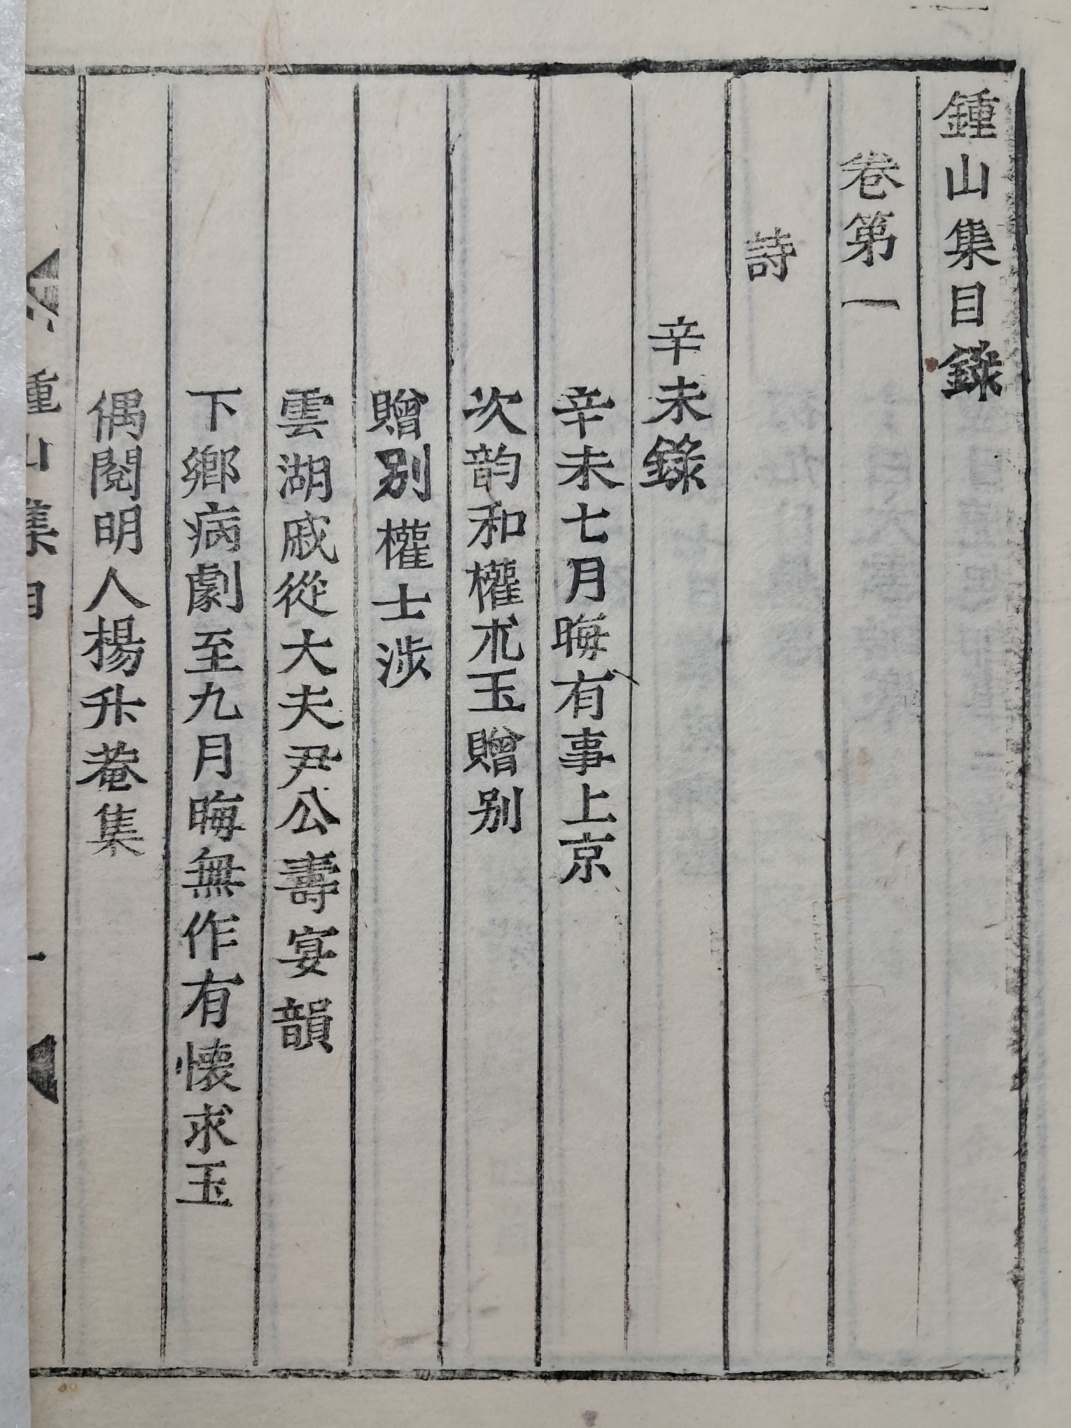 鍾山集目錄
卷第一
詩
辛未錄
辛未七月晦有事上京
次韵和權朮玉贈别
贈别權士涉
雲湖戚從大夫尹公壽宴韻
下鄉病劇至九月晦無作有懷求玉
偶閱明人楊升菴集
鍾山集目 一